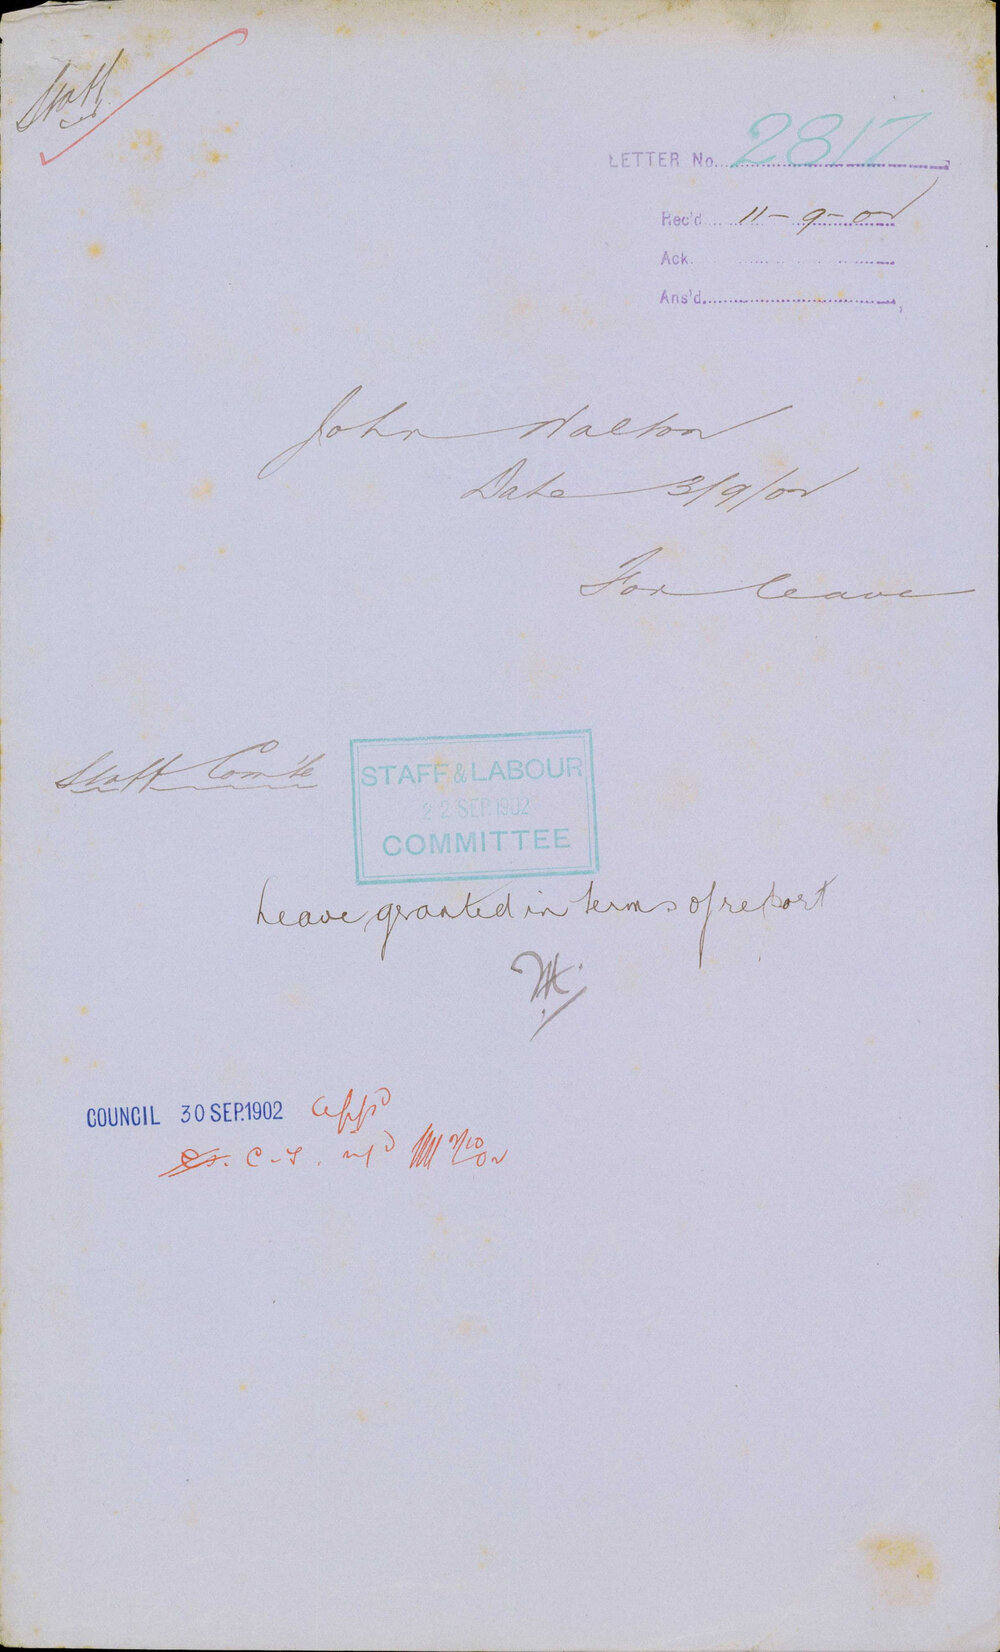 Staff
LETTER No. 2817
Rec'd 11-9-02
Ack.
Ans'd.
John Walton
Date 3/9/02
For leave
Staff Com'te
STAFF & LABOUR
22 SEP. 1902
COMMITTEE
Leave granted in terms of report
COUNCIL 30 SEP. 1902 App'd
C.S.